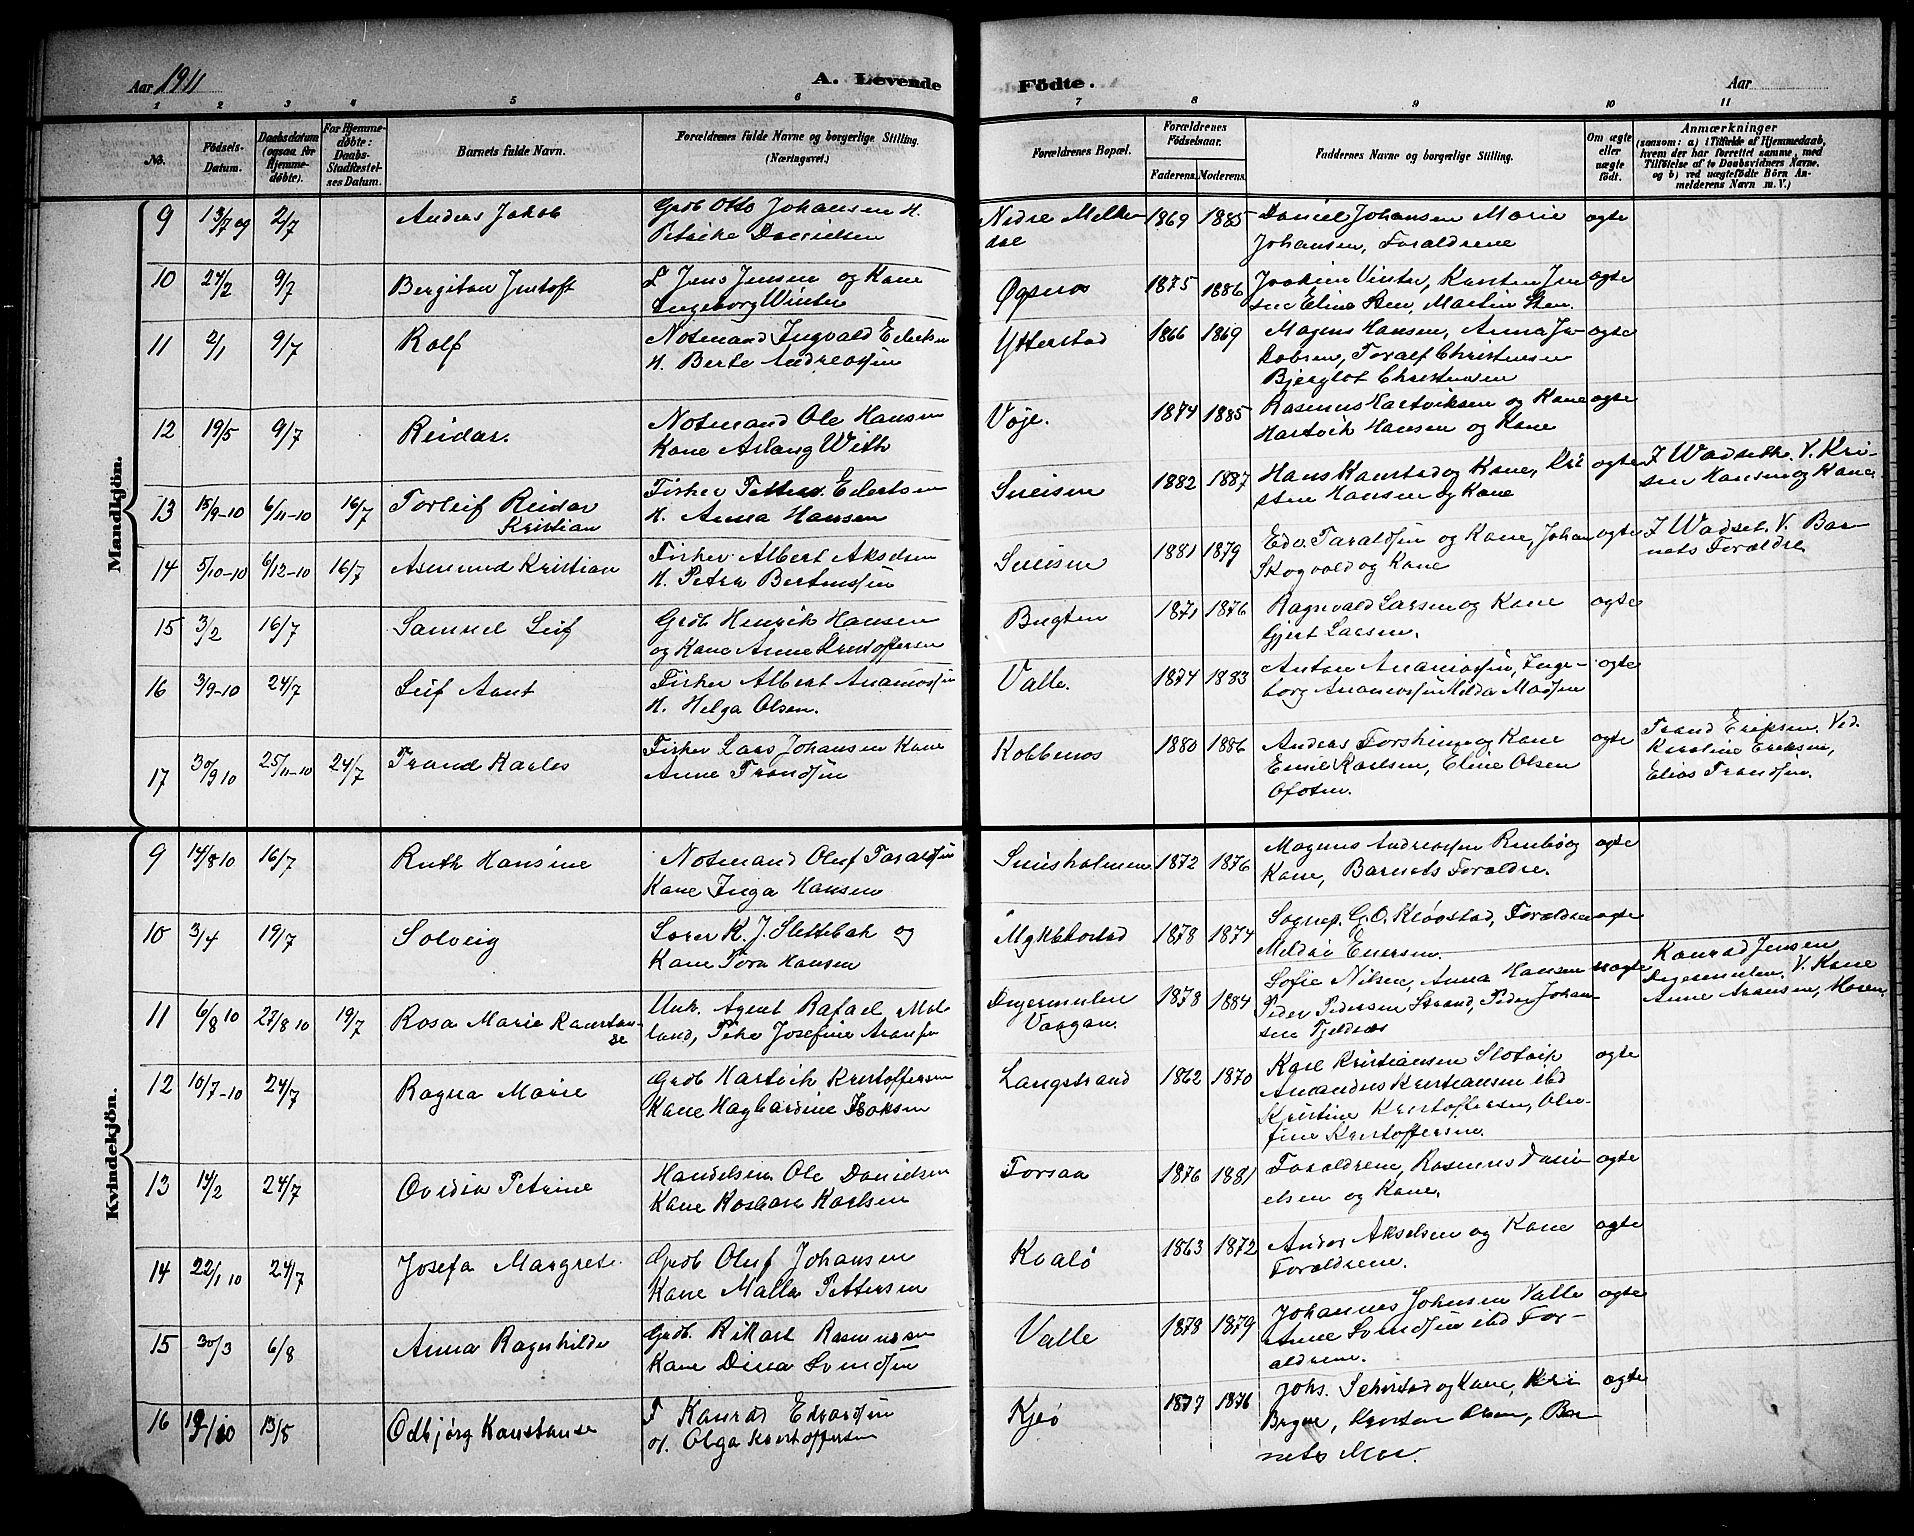 Aar 1911
A. Levende
Födte.
Aar
1 2 3 4 5 6 7 8 9 10 11
No.
Födsels-
Datum.
Daabsdatum
(ogsaa for
Hjemme-
döbte).
For Hjemme-
døbte:
Daabs-
Stadfæstel-
ses Datum.
Barnets fulde Navn.
Forældrenes fulde Navne og borgerlige Stilling.
(Næringsvei.)
Forældrenes Bopæl.
Forældrenes
Födselsaar.
Faderens. Moderens.
Faddernes Navne og borgerlige Stilling.
Om ægte
eller
uægte
født.
Anmærkninger
(saasom: a) i Tilfælde af Hjemmedaab,
hvem der har forrettet samme, med
Tilföielse af to Daabsvidners Navne,
og b) ved uægtefödte Börn An-
melderens Navn m. V.)
Mandkjön.
9 13/7 09 2/7 Andras Jakob
Grdb Otto Johansen H.
Petrike Danielsen
Nedre Melke
dal
1869 1885
Daniel Johansen Marie
Johansen, Foraldrene
ægte
10 24/2 9/7 Bergiton Justoft
L Jens Jensen og Kone
Ingeborg Winter
Øgsnes
1875 1886
Joakim Vinter, Karsten Jen
sen Eline Sten, Martin Sten
ægte
11 2/1 9/7 Rolf
Notmand Ingvald Eilertsen
H. Berte Andreassen
Ytterstad
1866 1869
Magnus Hansen, Anna Ja-
kobsen, Toralf Christensen
Bjerglot Christensen
ægte
12 19/5 9/7 Reidar.
Notmand Ole Hansen
Kone Aslaug With
Voje.
1874 1885
Rasmus Hartviksen og Kone
Hartvik Hansen og Kone
ægte
13 15/9-10 6/11-10 16/7 Torleif Reidar
Kristian
Fisker Petter Eilertsen
H. Anna Hansen
Sneisen
1882 1887
Hans Kanstad og Kone, Kri
sten Hansen og Kone
ægte
F Wadseth. V. Kri-
sten Hansen og Kone
14 5/10-10 6/12-10 16/7 Asmund Kristian
Fisker Albert Akselsen
H. Petra Bertinussen
Sneisen
1881 1879
Edv. Taraldsen og Kone, Johan
Skogvold og Kone
ægte
F Wadset. V. Bar-
nets Foraldre
15 3/2 16/7 Samuel Leif
Grdb Henrik Hansen
og Kone Anne Kristoffersen
Bugten
1871 1876
Ragnvald Larsen og Kone
Gjert Larsen.
ægte
16 3/9-10 24/7 Leif Arnt
Fisker Albert Ananiassen
H. Helga Olsen.
Valle.
1874 1883
Anton Ananiassen, Inge-
borg Ananiassen Milda Madsen
ægte
17 30/9 10 25/11-10 24/7 Trand Karles
Fisker Lars Johansen Kone
Anne Trandsen
Kobbenes
1880 1886
Andras Forshime og Kone
Emil Karlsen, Eline Olsen
Ofoten.
ægte
Trand Eriksen. Vid.
Karoline Eriksen,
Elias Trandsen.
Kvindekjön.
9 14/8 10 16/7 Ruth Hansine
Notmand Oluf Taraldsen
Kone Inga Hansen
Sneisholmen
1872 1876
Magnus Andreassen Rinbø og
Kone, Barnets Foraldre.
ægte
10 3/4 19/7 Solveig
Lærer K. J. Slettebak og
Kone Tora Hansen
Myklebostad
1878 1874
Sognep. G. O. Klogstad, Foraldrene
Meldor Einersen.
ægte
11 6/8 10 27/8 10 19/7 Rosa Marie Konstan-
se
Unk. Agent Rafael Mol-
land, Pike Josefine Aronsen
Digermulen
Vaagan.
1878 1884
Sofie Nilsen, Anna Hansen
Peder Pedersen Strand, Peder Johan-
sen Tjeldnes
uægte
Konrad Jensen
Digermulen. V. Kone
Anne Aronsen, Moren
12 10/7-10 24/7 Ragna Marie
Grdb Hartvik Kristoffersen
Kone Hagbardine Isaksen
Langstrand
1862 1870
Kare Kristiansen Slotvik
Amandus Kristiansen ibd
Kristine Kristoffersen, Ole-
fine Kristoffersen.
ægte
13 14/2 24/7 Ovidia Petrine
Handelsm. Ole Danielsen
Kone Kosbara Karlsen
Forsaa
1876 1881
Foraldrene, Rasmus Dani
elsen og Kone.
ægte
14 22/1 10 24/7 Josefa Margrete.
Grdb Oluf Johansen
Kone Malla Pettersen
Kvalø
1863 1872
Ander Akselsen og Kone
Foraldrene.
ægte
15 30/3 6/8 Anna Ragnhilde
Grdb. Rikart Rasmussen
Kone Dina Svendsen
Valle
1878 1879
Johannes Johnsen Valle
Anne Svendsen ibd For-
aldrene.
ægte
16 13/8 Odbjørg Konstanse
F Konrad Edvardsen
H. Olga Kristoffersen
Kjeø
1877 1876
Johs. Schistad og Kone, Kri
Olsen, Bar-
nets Mor.
ægte